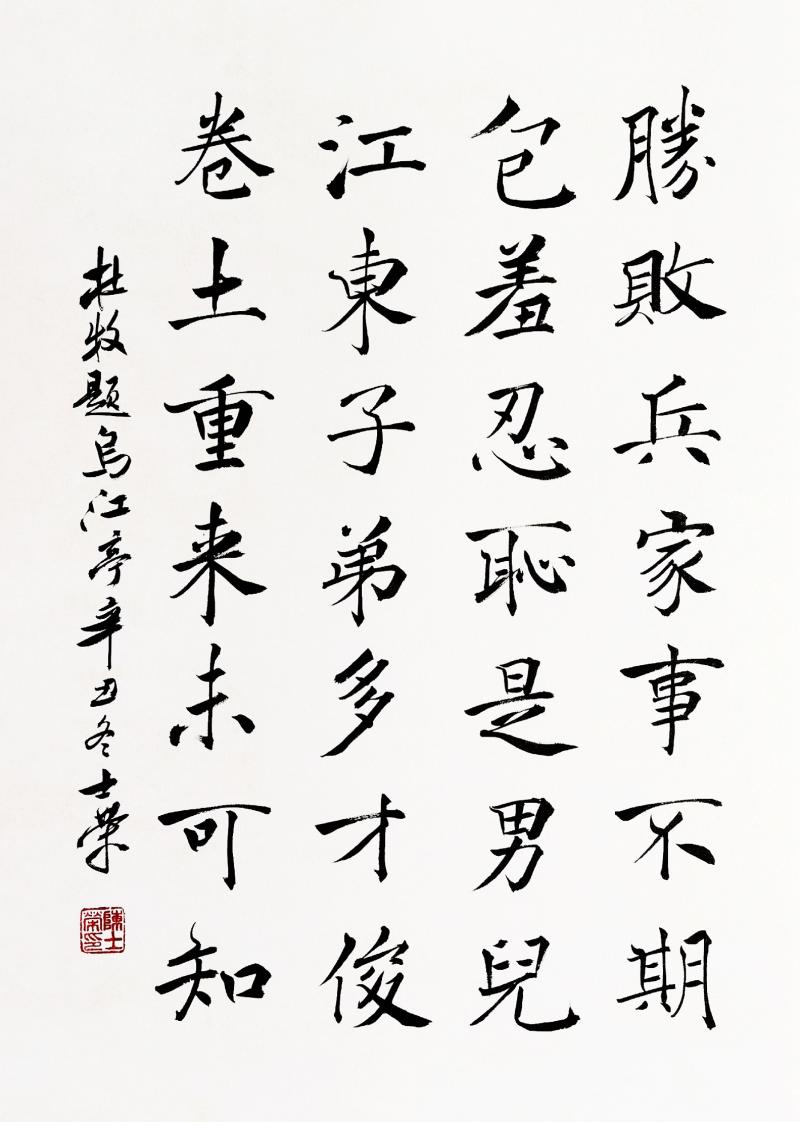 勝敗兵家事不期
包羞忍恥是男兒
江東子弟多才俊
卷土重来未可知
杜牧题烏江亭辛丑冬士榮
陳士榮印